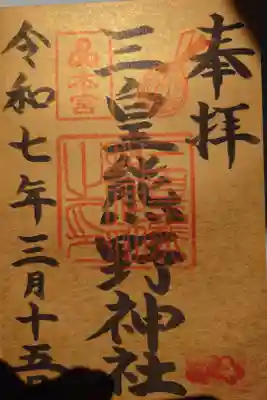 奉拝
三皇熊野神社
令和七年三月十五日